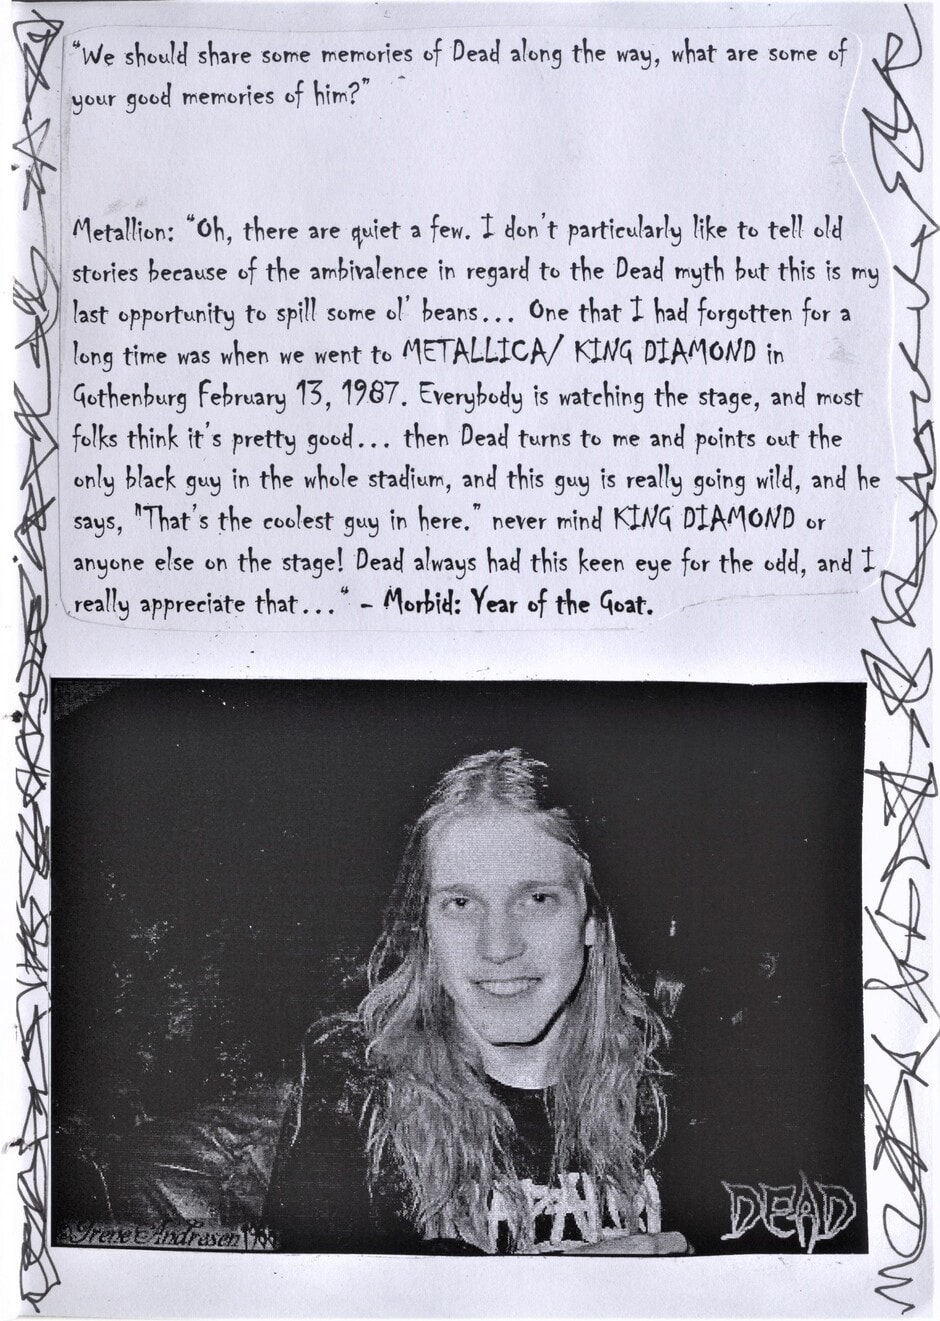 “We should share some memories of Dead along the way, what are some of
your good memories of him?”
Metallion: “Oh, there are quiet a few. I don't particularly like to tell old
stories because of the ambivalence in regard to the Dead myth but this is my
last opportunity to spill some ol' beans... One that I had forgotten for a
long time was when we went to METALLICA/ KING DIAMOND in
Gothenburg February 13, 1987. Everybody is watching the stage, and most
folks think it's pretty good... then Dead turns to me and points out the
only black guy in the whole stadium, and this guy is really going wild, and he
says, "That's the coolest guy in here.” never mind KING DIAMOND or
anyone else on the stage! Dead always had this keen eye for the odd, and I
really appreciate that...“ - Morbid: Year of the Goat.
DEAD